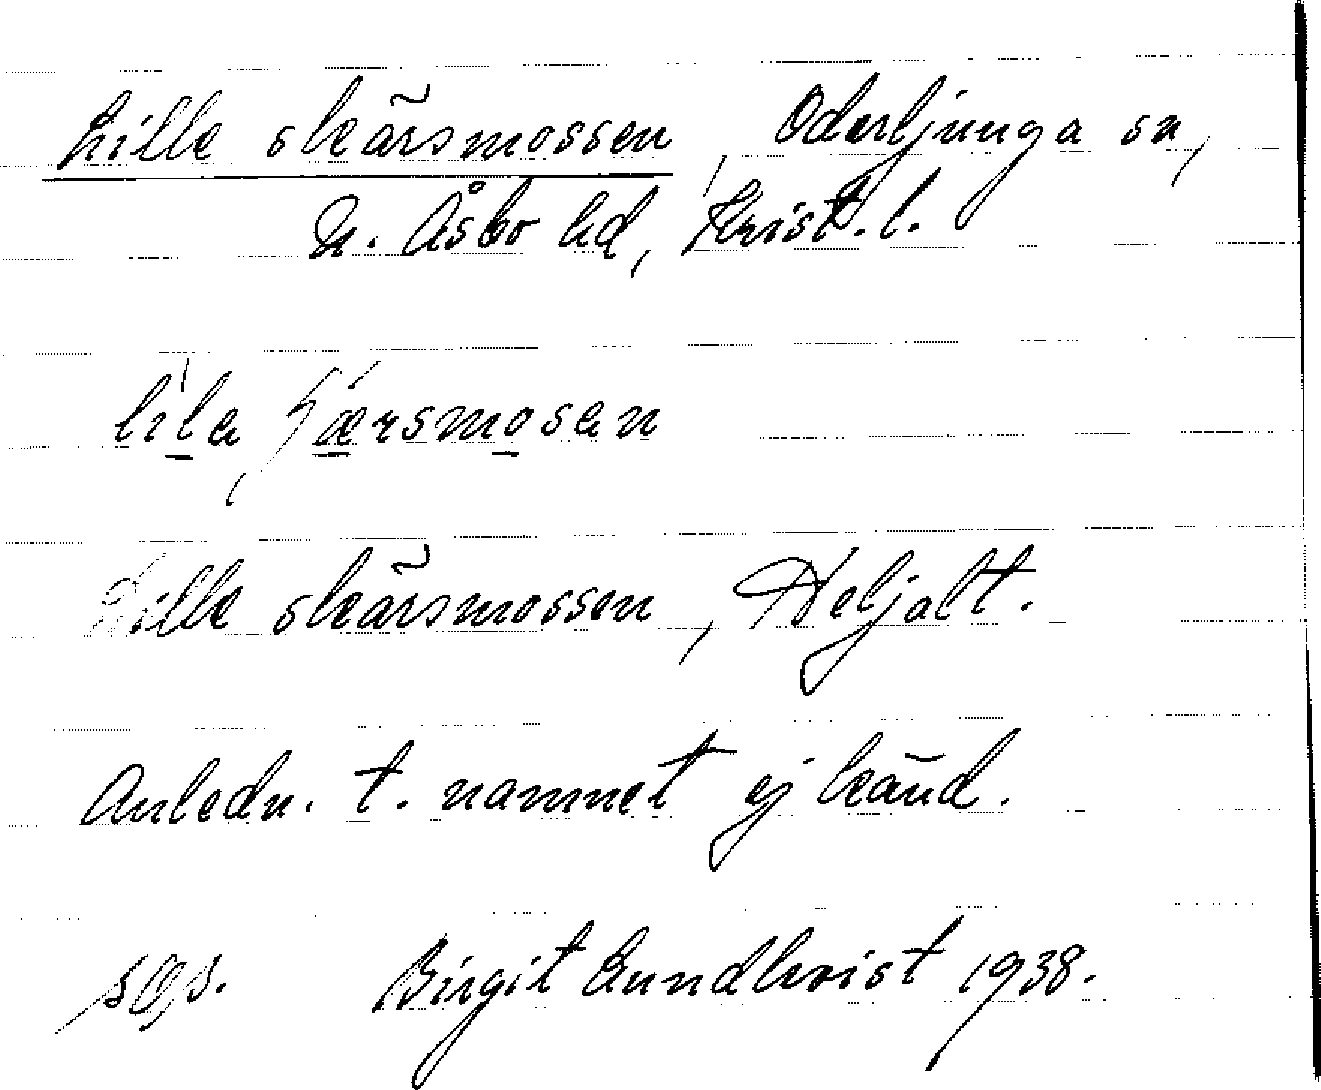 Lille skärsmossen, Oderljunga sn,
N. Åsbo hd, Krist. l.
lìla ʃǽrsmosen
Lille skärsmossen, Heljalt.
Anledn. t. namnet ej känd.
Birgit Lundkvist 1938.